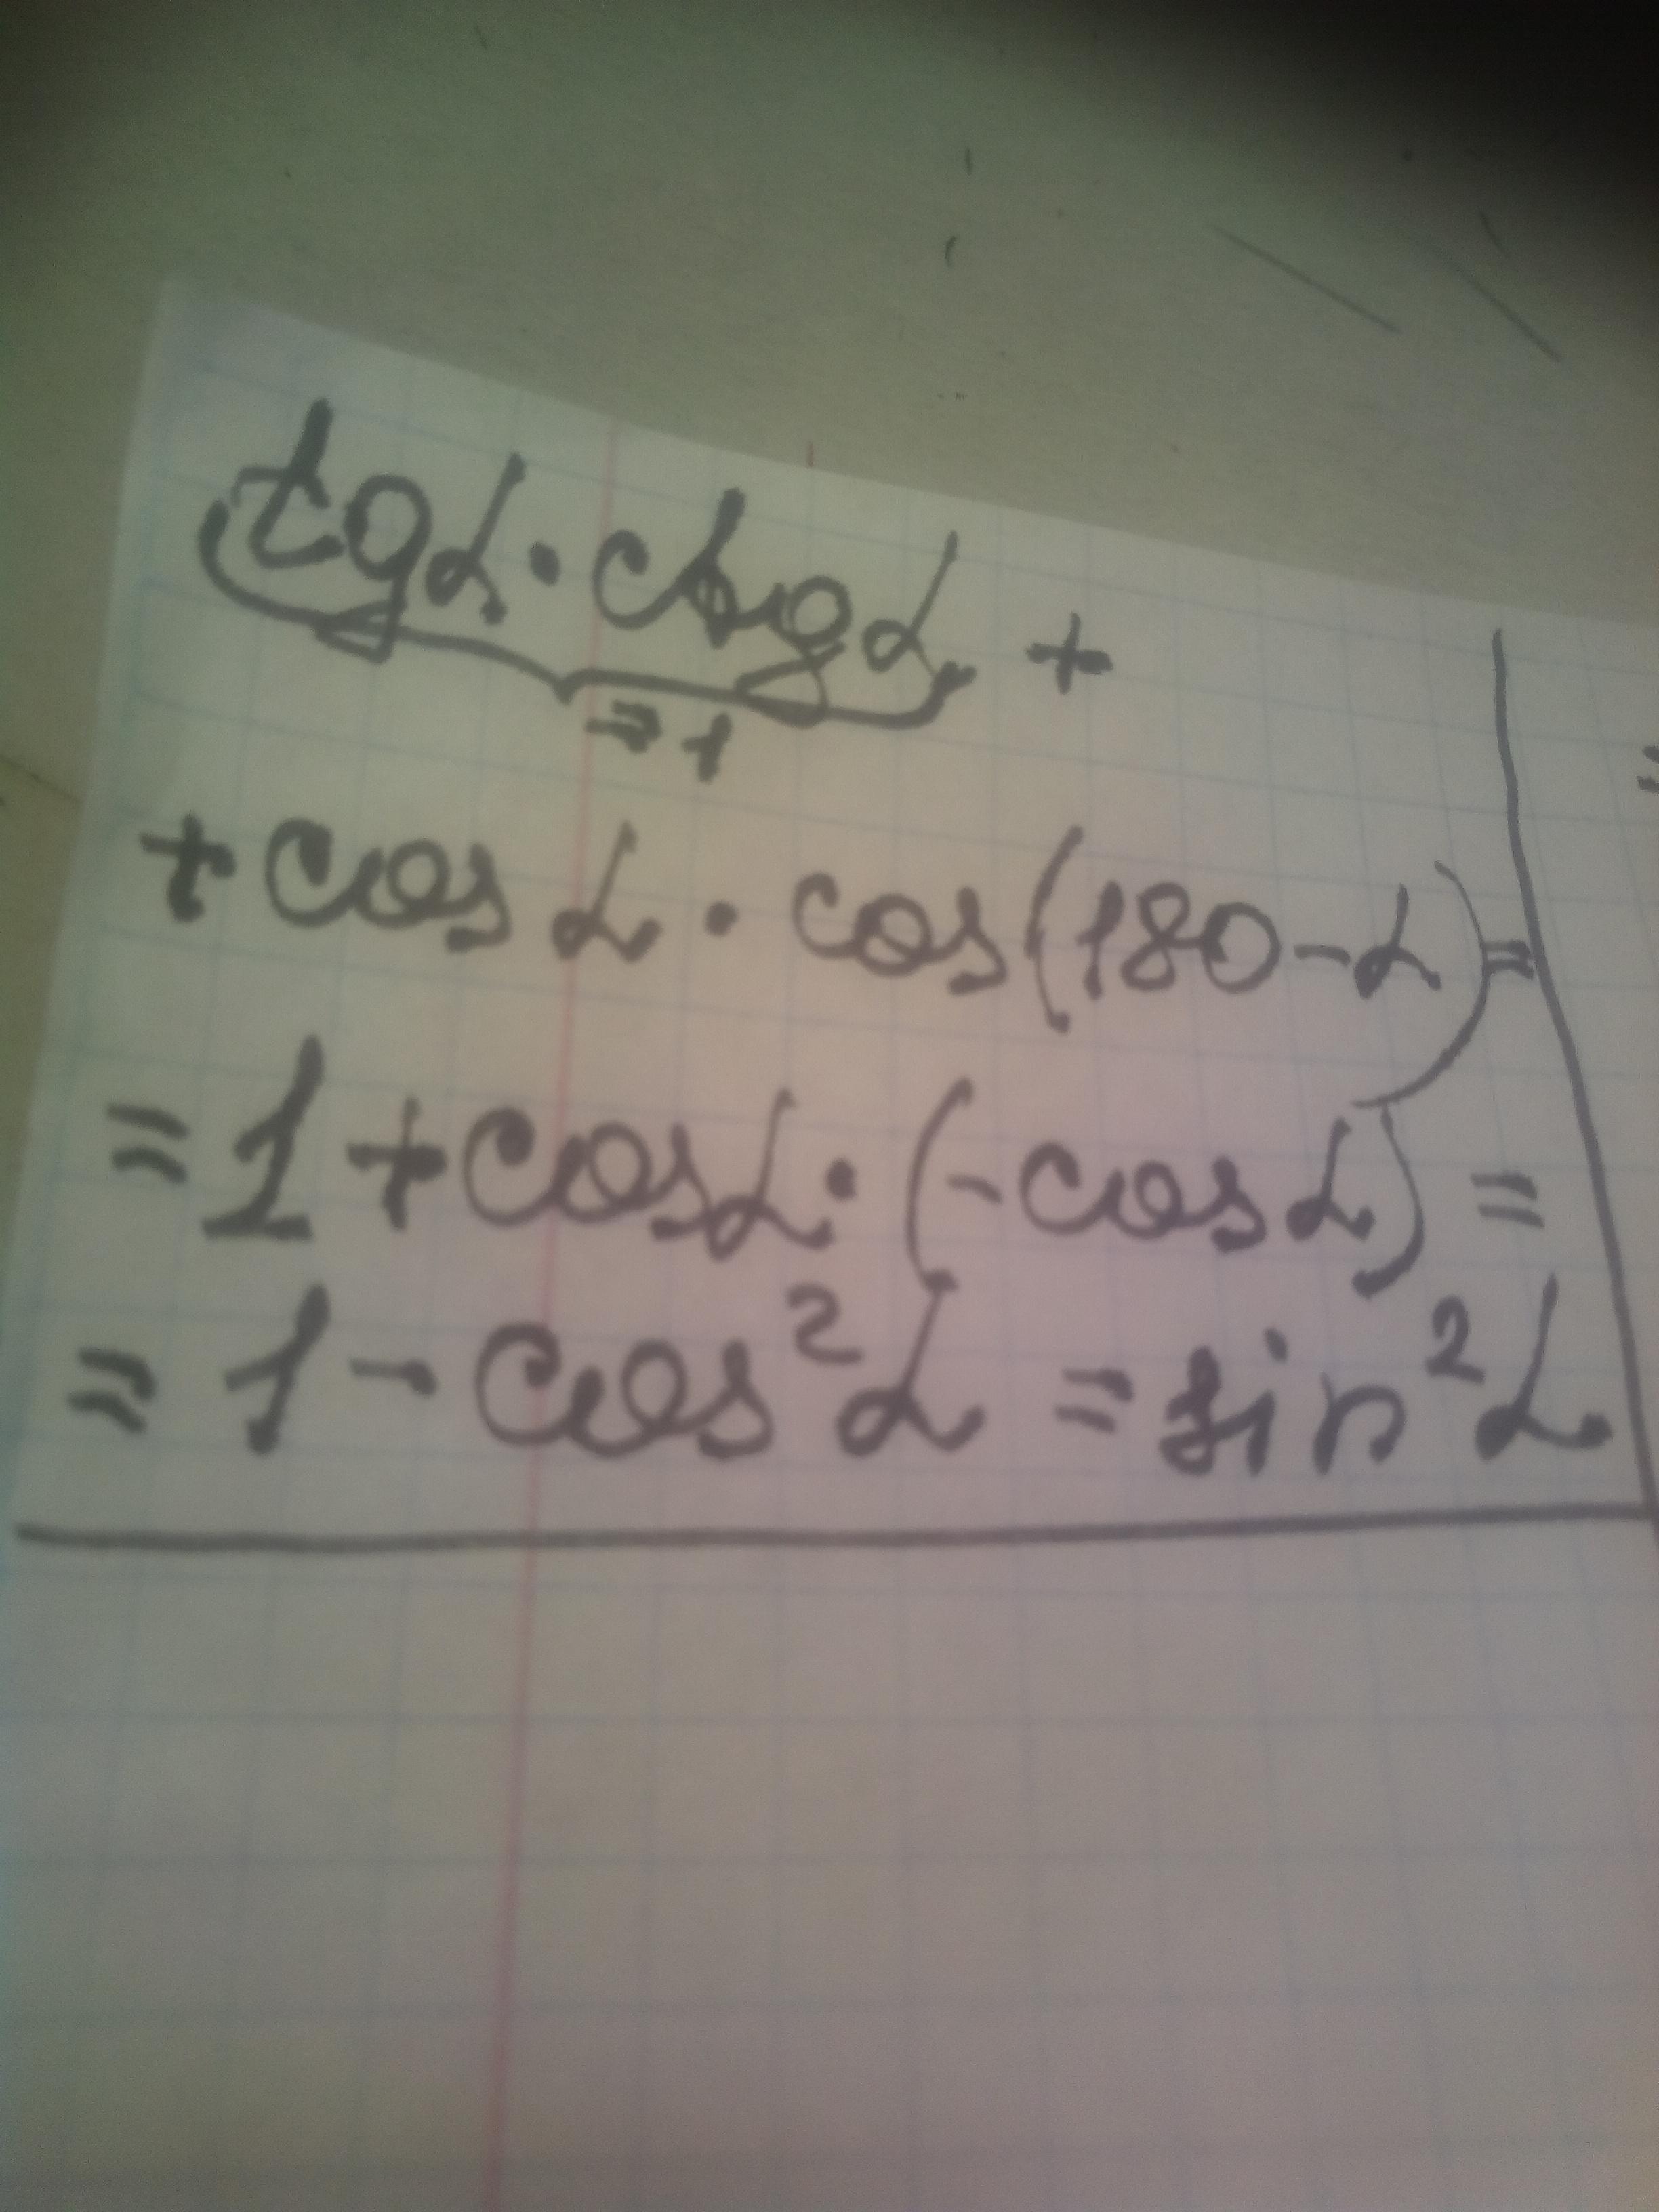 tgα · ctgα +
= 1
+ cos α · cos(180 - α) =
= 1 + cosα · (- cos α) =
= 1 - cos² α = sin² α
=